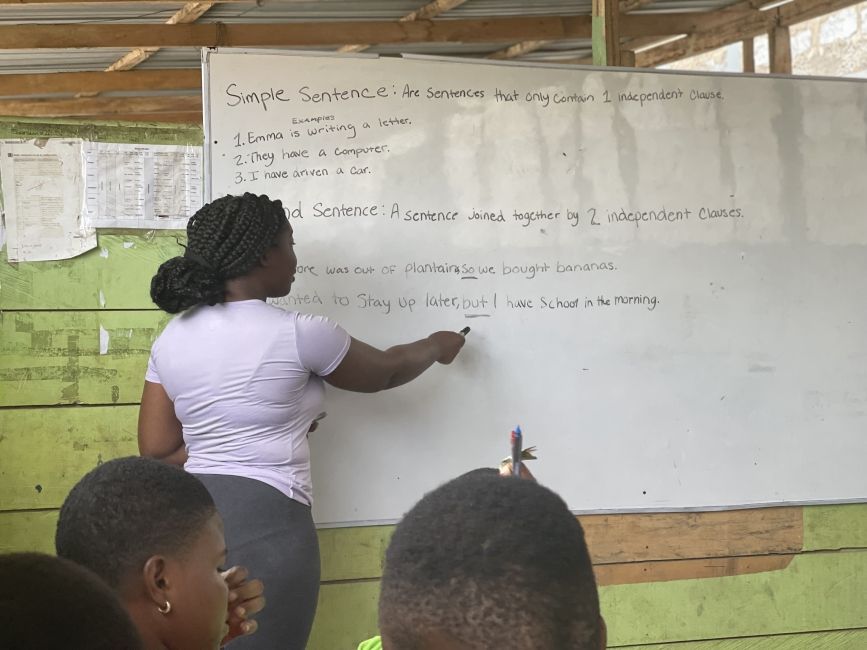 Simple Sentence: Are Sentences that only contain 1 independent Clause.
Examples
1. Emma is writing a letter.
2. They have a computer.
3. I have driven a car.
Sentence: A sentence joined together by 2 independent Clauses.
was out of plantain, so we bought bananas.
wanted to stay up later, but I have School in the morning.